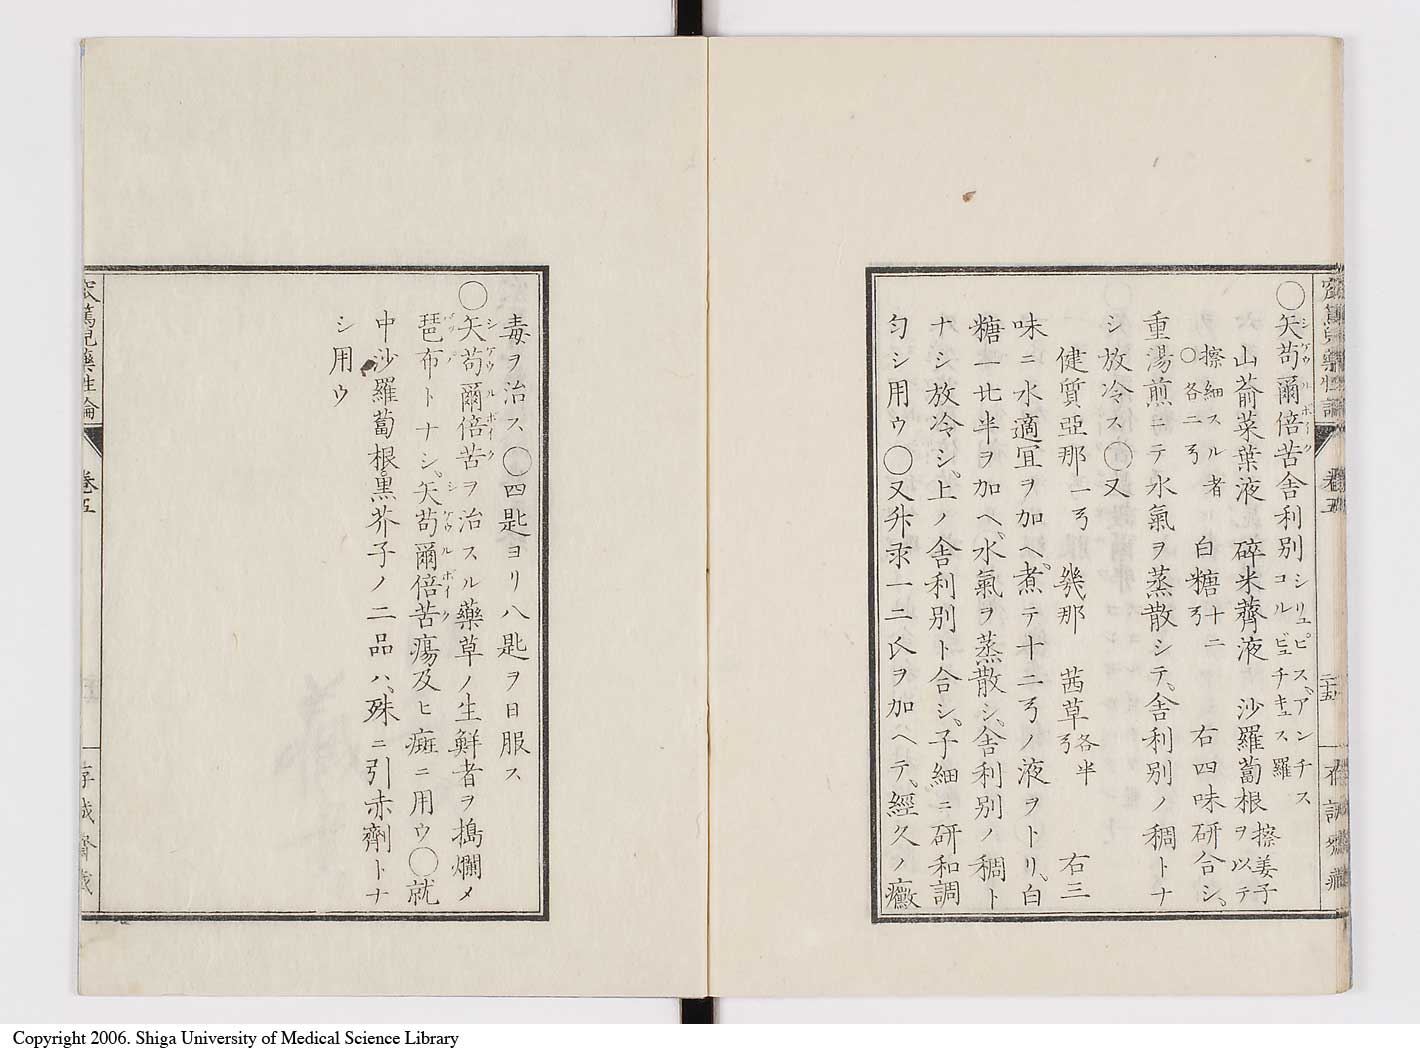 〇矢苟爾倍苦舎利別 シリュピス、アンチス コルビュチキュス羅
山葥菜葉液 碎米薺液 沙羅蔔根 擦姜子ヲ以テ
擦細スル者 〇各二弓 白糖 十二弓 右四味研合シ、
重湯煎ニテ水氣ヲ蒸散シテ、舎利別ノ稠トナ
シ放冷ス〇又
健質亞那 一弓 幾那 茜草 各半弓 右三
味ニ水適宜ヲ加ヘ、煮テ十二弓ノ液ヲトリ、白
糖一比半ヲ加ヘ、水氣ヲ蒸散シ、舎利別ノ稠ト
ナシ放冷シ、上ノ舎利別ト合シ、子細ニ研和調
匀シ用ウ〇又升汞一二氏ヲ加ヘテ、經久ノ黴
巻五
二十五
毒ヲ治ス〇四匙ヨリ八匙ヲ日服ス
〇矢苟爾倍苦ヲ治スル藥草ノ生鮮者ヲ搗爛メ
琶布トナシ、矢苟爾倍苦瘍及ヒ癍ニ用ウ〇就
中沙羅蔔根黒芥子ノ二品ハ、殊ニ引赤劑トナ
シ用ウ
窊篤兒藥性論
巻五
存誠齋藏
Copyright 2006. Shiga University of Medical Science Library